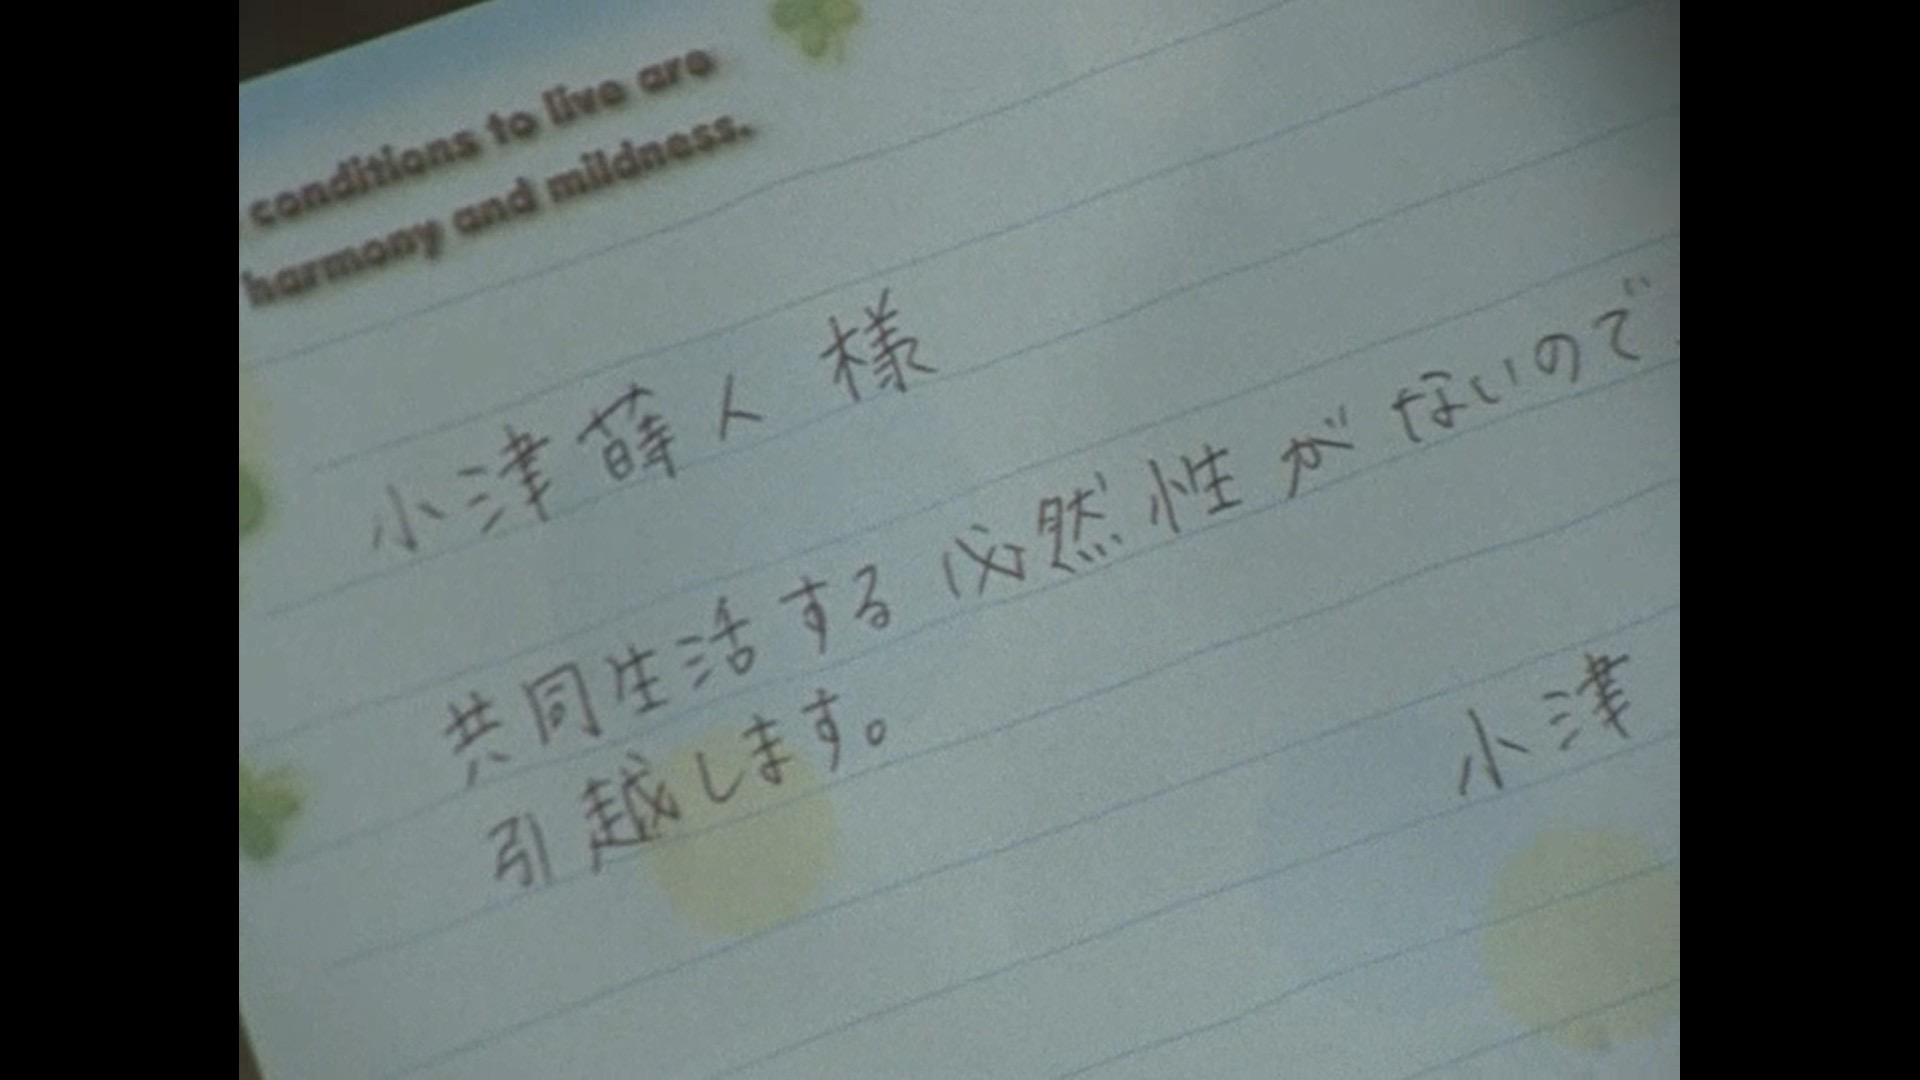 conditions to live are
harmony and mildness.
小津蒔人 様
共同生活する必然性がないので、
引越します。
小津